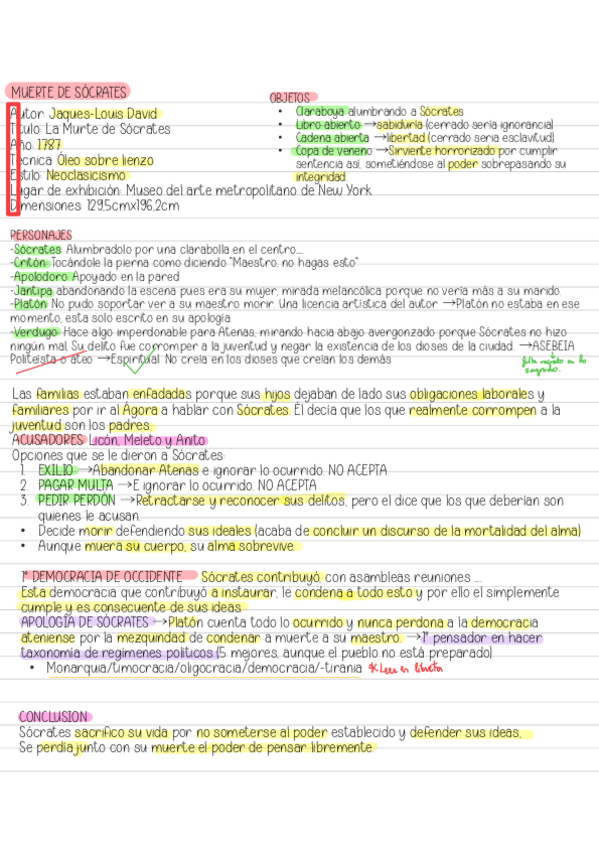 MUERTE DE SÓCRATES
Autor: Jaques-Louis David
Título: La Murte de Sócrates
Año: 1787
Técnica: Óleo sobre lienzo
Estilo: Neoclasicismo
Lugar de exhibición: Museo del arte metropolitano de New York
Dimensiones: 129,5cmx196,2cm
OBJETOS
• Claraboya alumbrando a Sócrates
• Libro abierto →sabiduría (cerrado sería ignorancia)
• Cadena abierta →libertad (cerrado seria esclavitud)
• Copa de veneno →Sirviente horrorizado por cumplir
sentencia así, sometiéndose al poder sobrepasando su
integridad.
PERSONAJES
-Sócrates: Alumbradolo por una clarabolla en el centro....
-Critón: Tocándole la pierna como diciendo "Maestro, no hagas esto"
-Apolodoro: Apoyado en la pared
-Jantipa: abandonando la escena pues era su mujer, mirada melancólica porque no vería más a su marido.
-Platón: No pudo soportar ver a su maestro morir. Una licencia artística del autor →Platón no estaba en ese
momento, esta solo escrito en su apología.
-Verdugo: Hace algo imperdonable para Atenas, mirando hacia abajo avergonzado porque Sócrates no hizo
ningún mal. Su delito fue corromper a la juventud y negar la existencia de los dioses de la ciudad. →ASEBEIA
Politeísta o ateo →Espiritual: No creía en los dioses que creían los demás
falta respeto en lo
sagrado.
Las familias estaban enfadadas porque sus hijos dejaban de lado sus obligaciones laborales y
familiares por ir al Ágora a hablar con Sócrates. Él decía que los que realmente corrompen a la
juventud son los padres.
ACUSADORES: Licón, Meleto y Anito
Opciones que se le dieron a Sócrates:
1. EXILIO →Abandonar Atenas e ignorar lo ocurrido. NO ACEPTA
2. PAGAR MULTA →E ignorar lo ocurrido. NO ACEPTA
3. PEDIR PERDÓN →Retractarse y reconocer sus delitos, pero el dice que los que deberían son
quienes le acusan.
• Decide morir defendiendo sus ideales (acaba de concluir un discurso de la mortalidad del alma)
• Aunque muera su cuerpo, su alma sobrevive.
1ª DEMOCRACIA DE OCCIDENTE: Sócrates contribuyó, con asambleas reuniones ....
Esta democracia que contribuyó a instaurar, le condena a todo esto y por ello el simplemente
cumple y es consecuente de sus ideas
APOLOGÍA DE SÓCRATES →Platón cuenta todo lo ocurrido y nunca perdona a la democracia
ateniense por la mezquindad de condenar a muerte a su maestro. →1º pensador en hacer
taxonomía de regímenes políticos (5 mejores, aunque el pueblo no está preparado)
• Monarquia/timocracia/oligocracia/democracia/-tirania *Leer en libreta
CONCLUSION
Sócrates sacrifico su vida por no someterse al poder establecido y defender sus ideas,
Se perdía junto con su muerte el poder de pensar libremente.